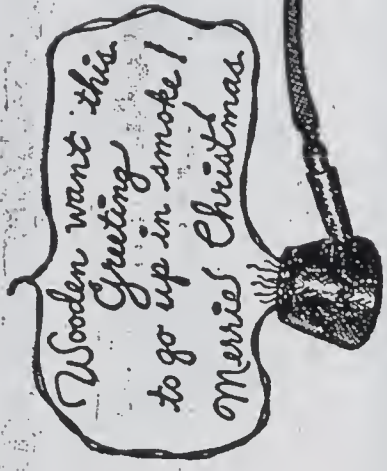 Wooden want this
Greeting
to go up in smoke!
Merrie Christmas